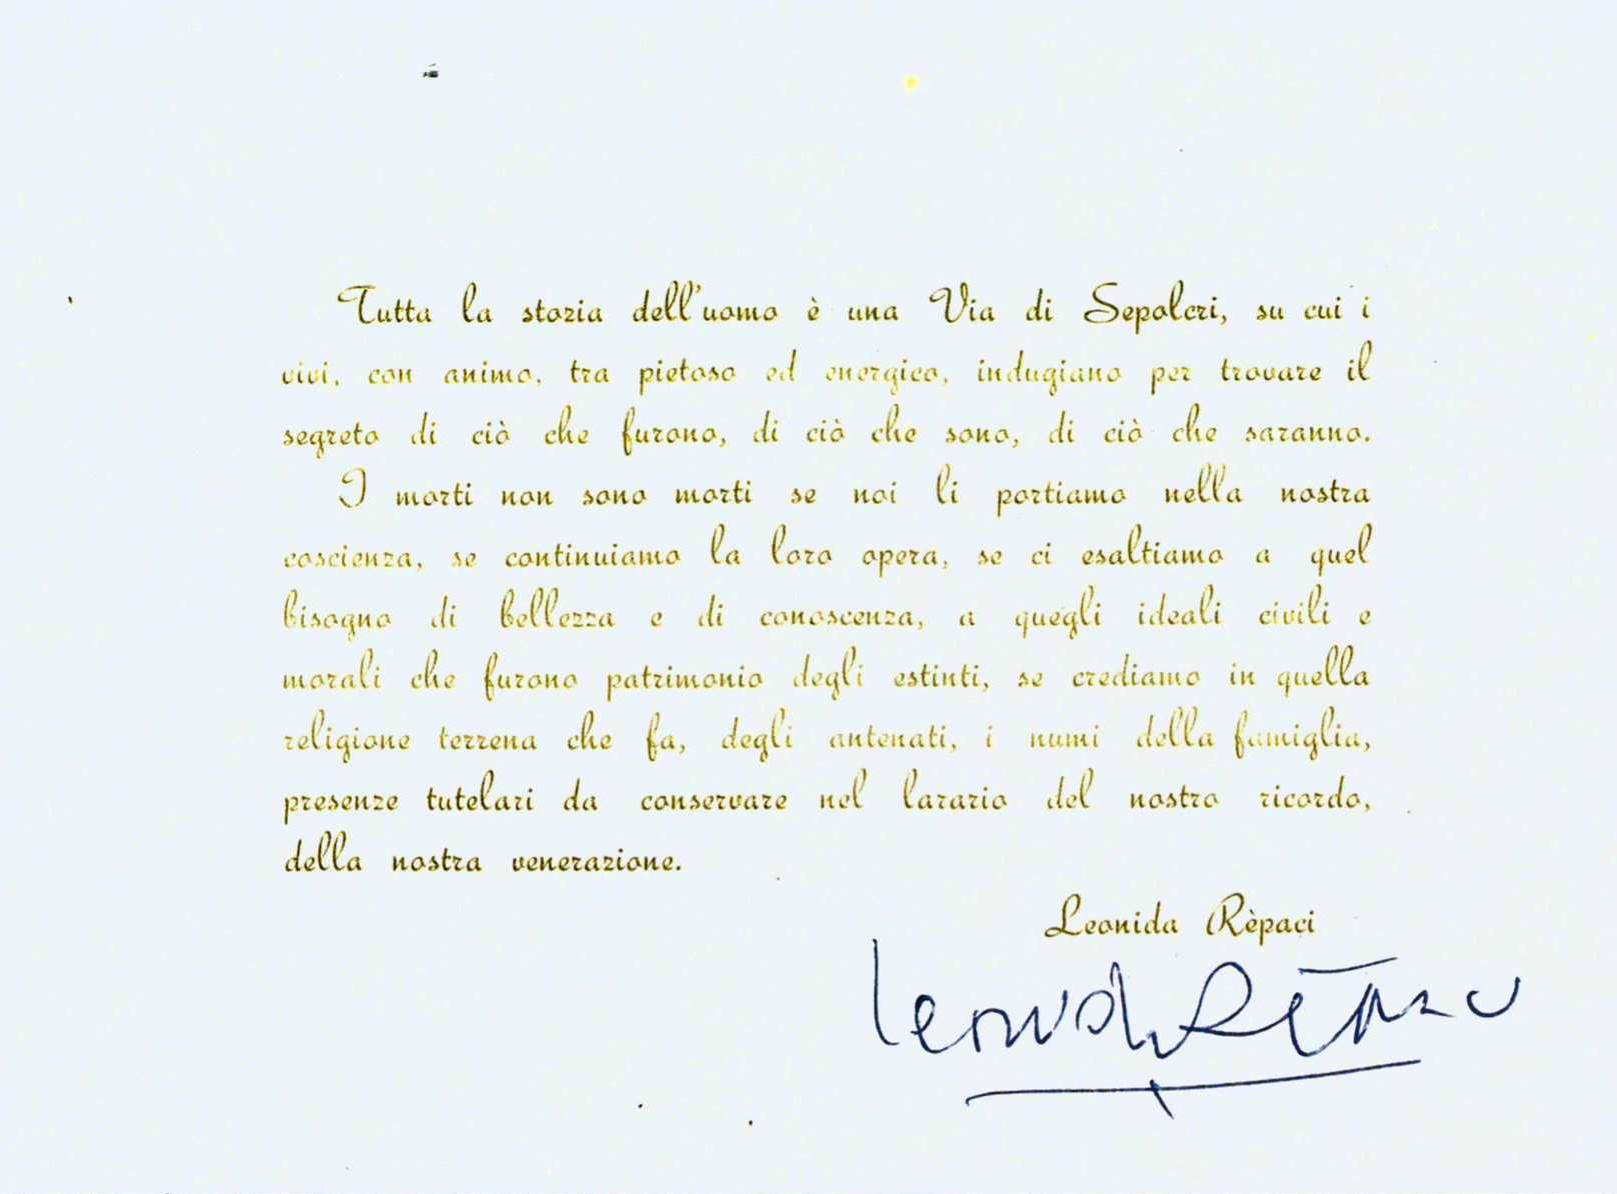 Tutta la storia dell'uomo è una Via di Sepolcri, su cui i
vivi, con animo, tra pietoso ed energico, indugiano per trovare il
segreto di ciò che furono, di ciò che sono, di ciò che saranno.
I morti non sono morti se noi li portiamo nella nostra
coscienza, se continuiamo la loro opera, se ci esaltiamo a quel
bisogno di bellezza e di conoscenza, a quegli ideali civili e
morali che furono patrimonio degli estinti, se crediamo in quella
religione terrena che fa, degli antenati, i numi della famiglia,
presenze tutelari da conservare nel larario del nostro ricordo,
della nostra venerazione.
Leonida Rèpaci
Leonida Rèpaci